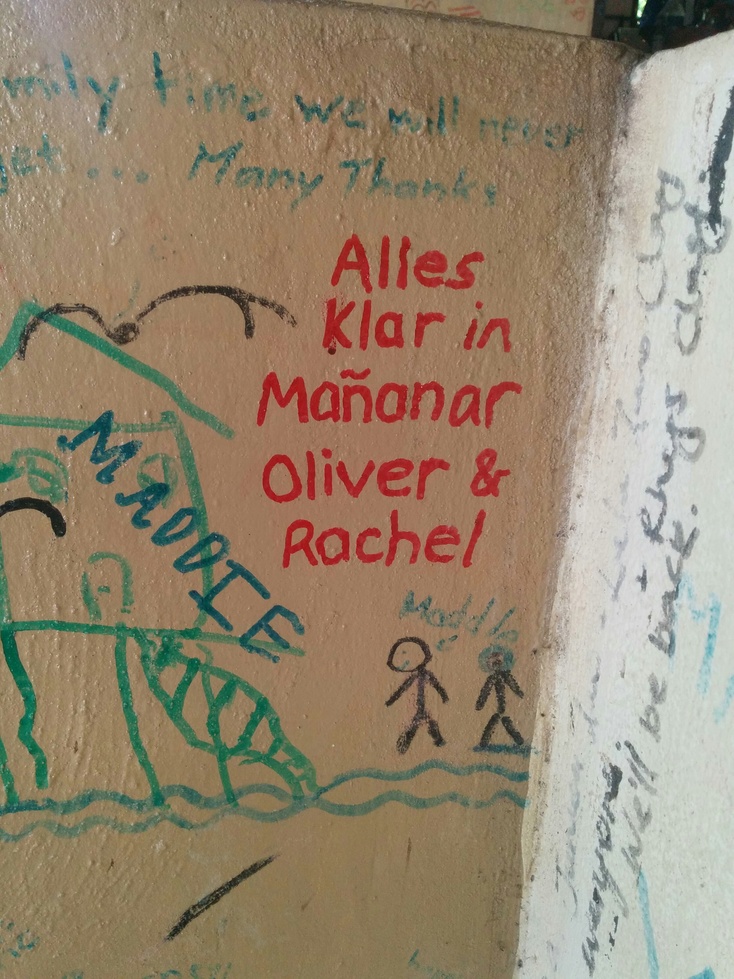 mily time we will never
get... Many Thanks
Alles
Klar in
Mañanar
Oliver &
Rachel
MADDIE
Maddie
+ Rhys
everyone!
... We'll be back.